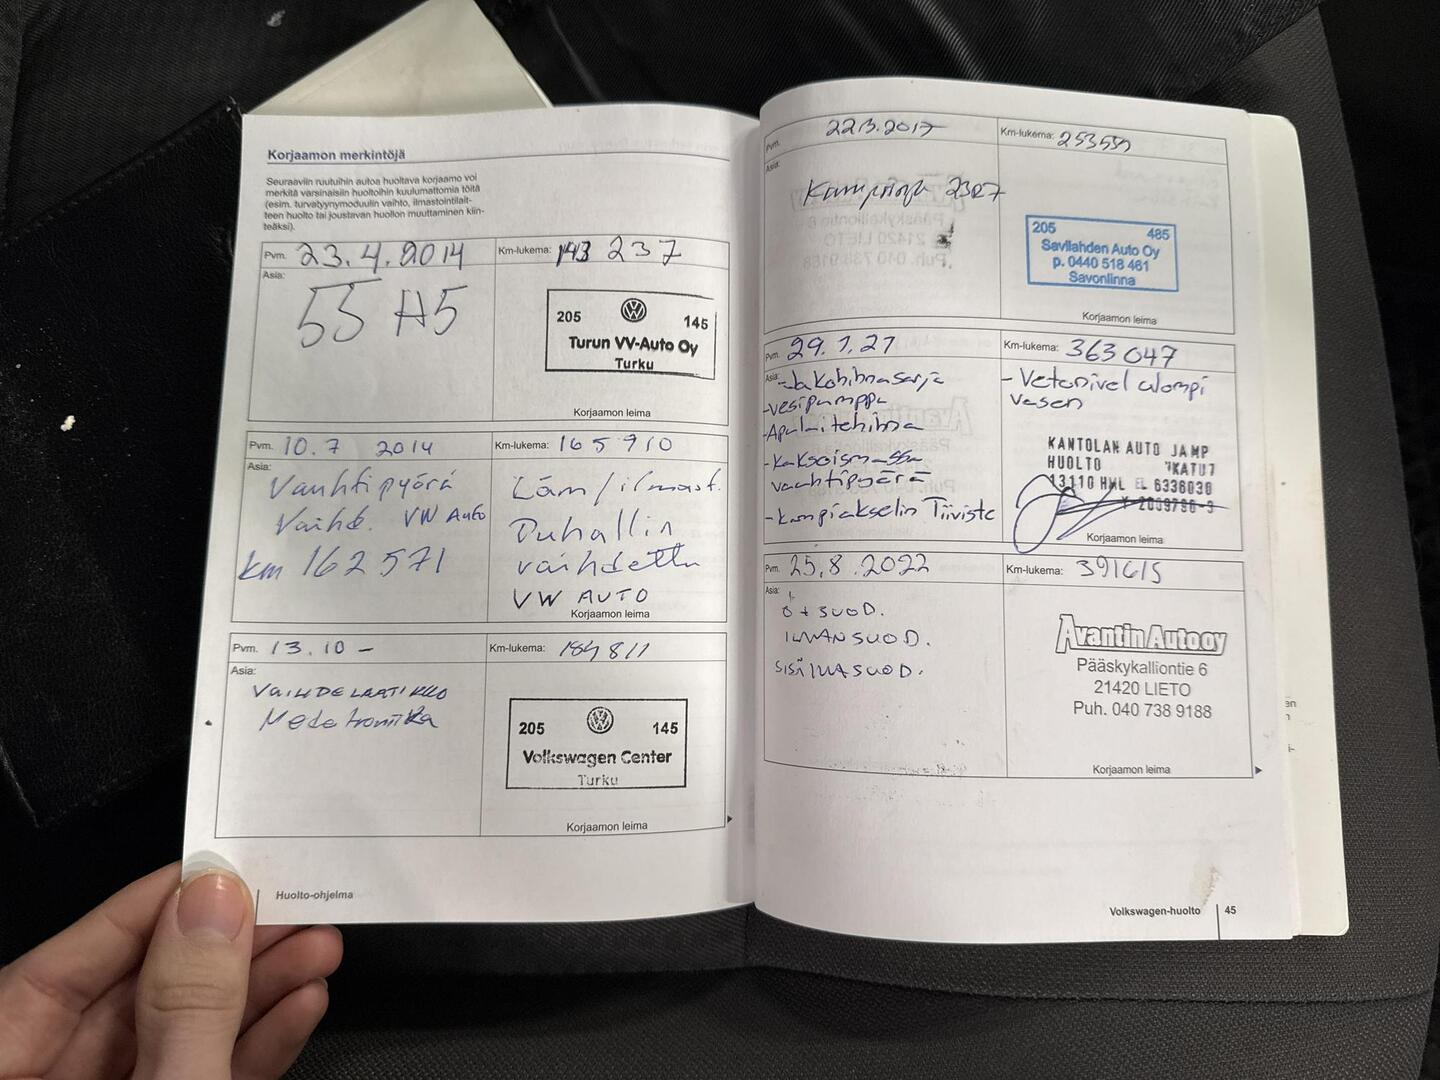 Korjaamon merkintöjä
Seuraaviin ruutuihin autoa huoltava korjaamo voi
merkitä varsinaisiin huoltoihin kuulumattomia töitä
(esim. turvatyynymoduulin vaihto, ilmastointilait-
teen huolto tai joustavan huollon muuttaminen kiin-
teäksi).
Pvm. 23.4.2014
Km-lukema: 143 237
Asia:
55 A5
205 145
Turun VV-Auto Oy
Turku
Korjaamon leima
Pvm. 10.7 2014
Km-lukema: 165 910
Asia:
Vauhtipyörä
Vaihd. VW Auto
km 162 571
Läm/ilmast.
Puhallin
vaihdettu
VW AUTO
Korjaamon leima
Pvm. 13.10 -
Km-lukema: 184 811
Asia:
VAIHDELAATIKKO
Mecatroniikka
205 145
Volkswagen Center
Turku
Korjaamon leima
Huolto-ohjelma
Pvm. 22.3.2017
Km-lukema: 253551
Asia:
205 485
Savilahden Auto Oy
p. 0440 518 461
Savonlinna
Korjaamon leima
Pvm. 29.1.21
Km-lukema: 363 047
Asia:
- Jakohihnasarja
- Vesipumppu
- Apulaitehihna
- Kaksoismassa
vauhtipyörä
- Kampiakselin Tiiviste
- Vetonivel ulompi
vasen
KANTOLAN AUTO JA MP
HUOLTO KATU7
13110 HML EL 6336030
Y 2009796-3
Korjaamon leima
Pvm. 25.8.2022
Km-lukema: 391615
Asia:
Ö+SUOD.
ILMANSUOD.
SISÄILMASUOD.
Avantin Auto oy
Pääskykalliontie 6
21420 LIETO
Puh. 040 738 9188
Korjaamon leima
Volkswagen-huolto 45